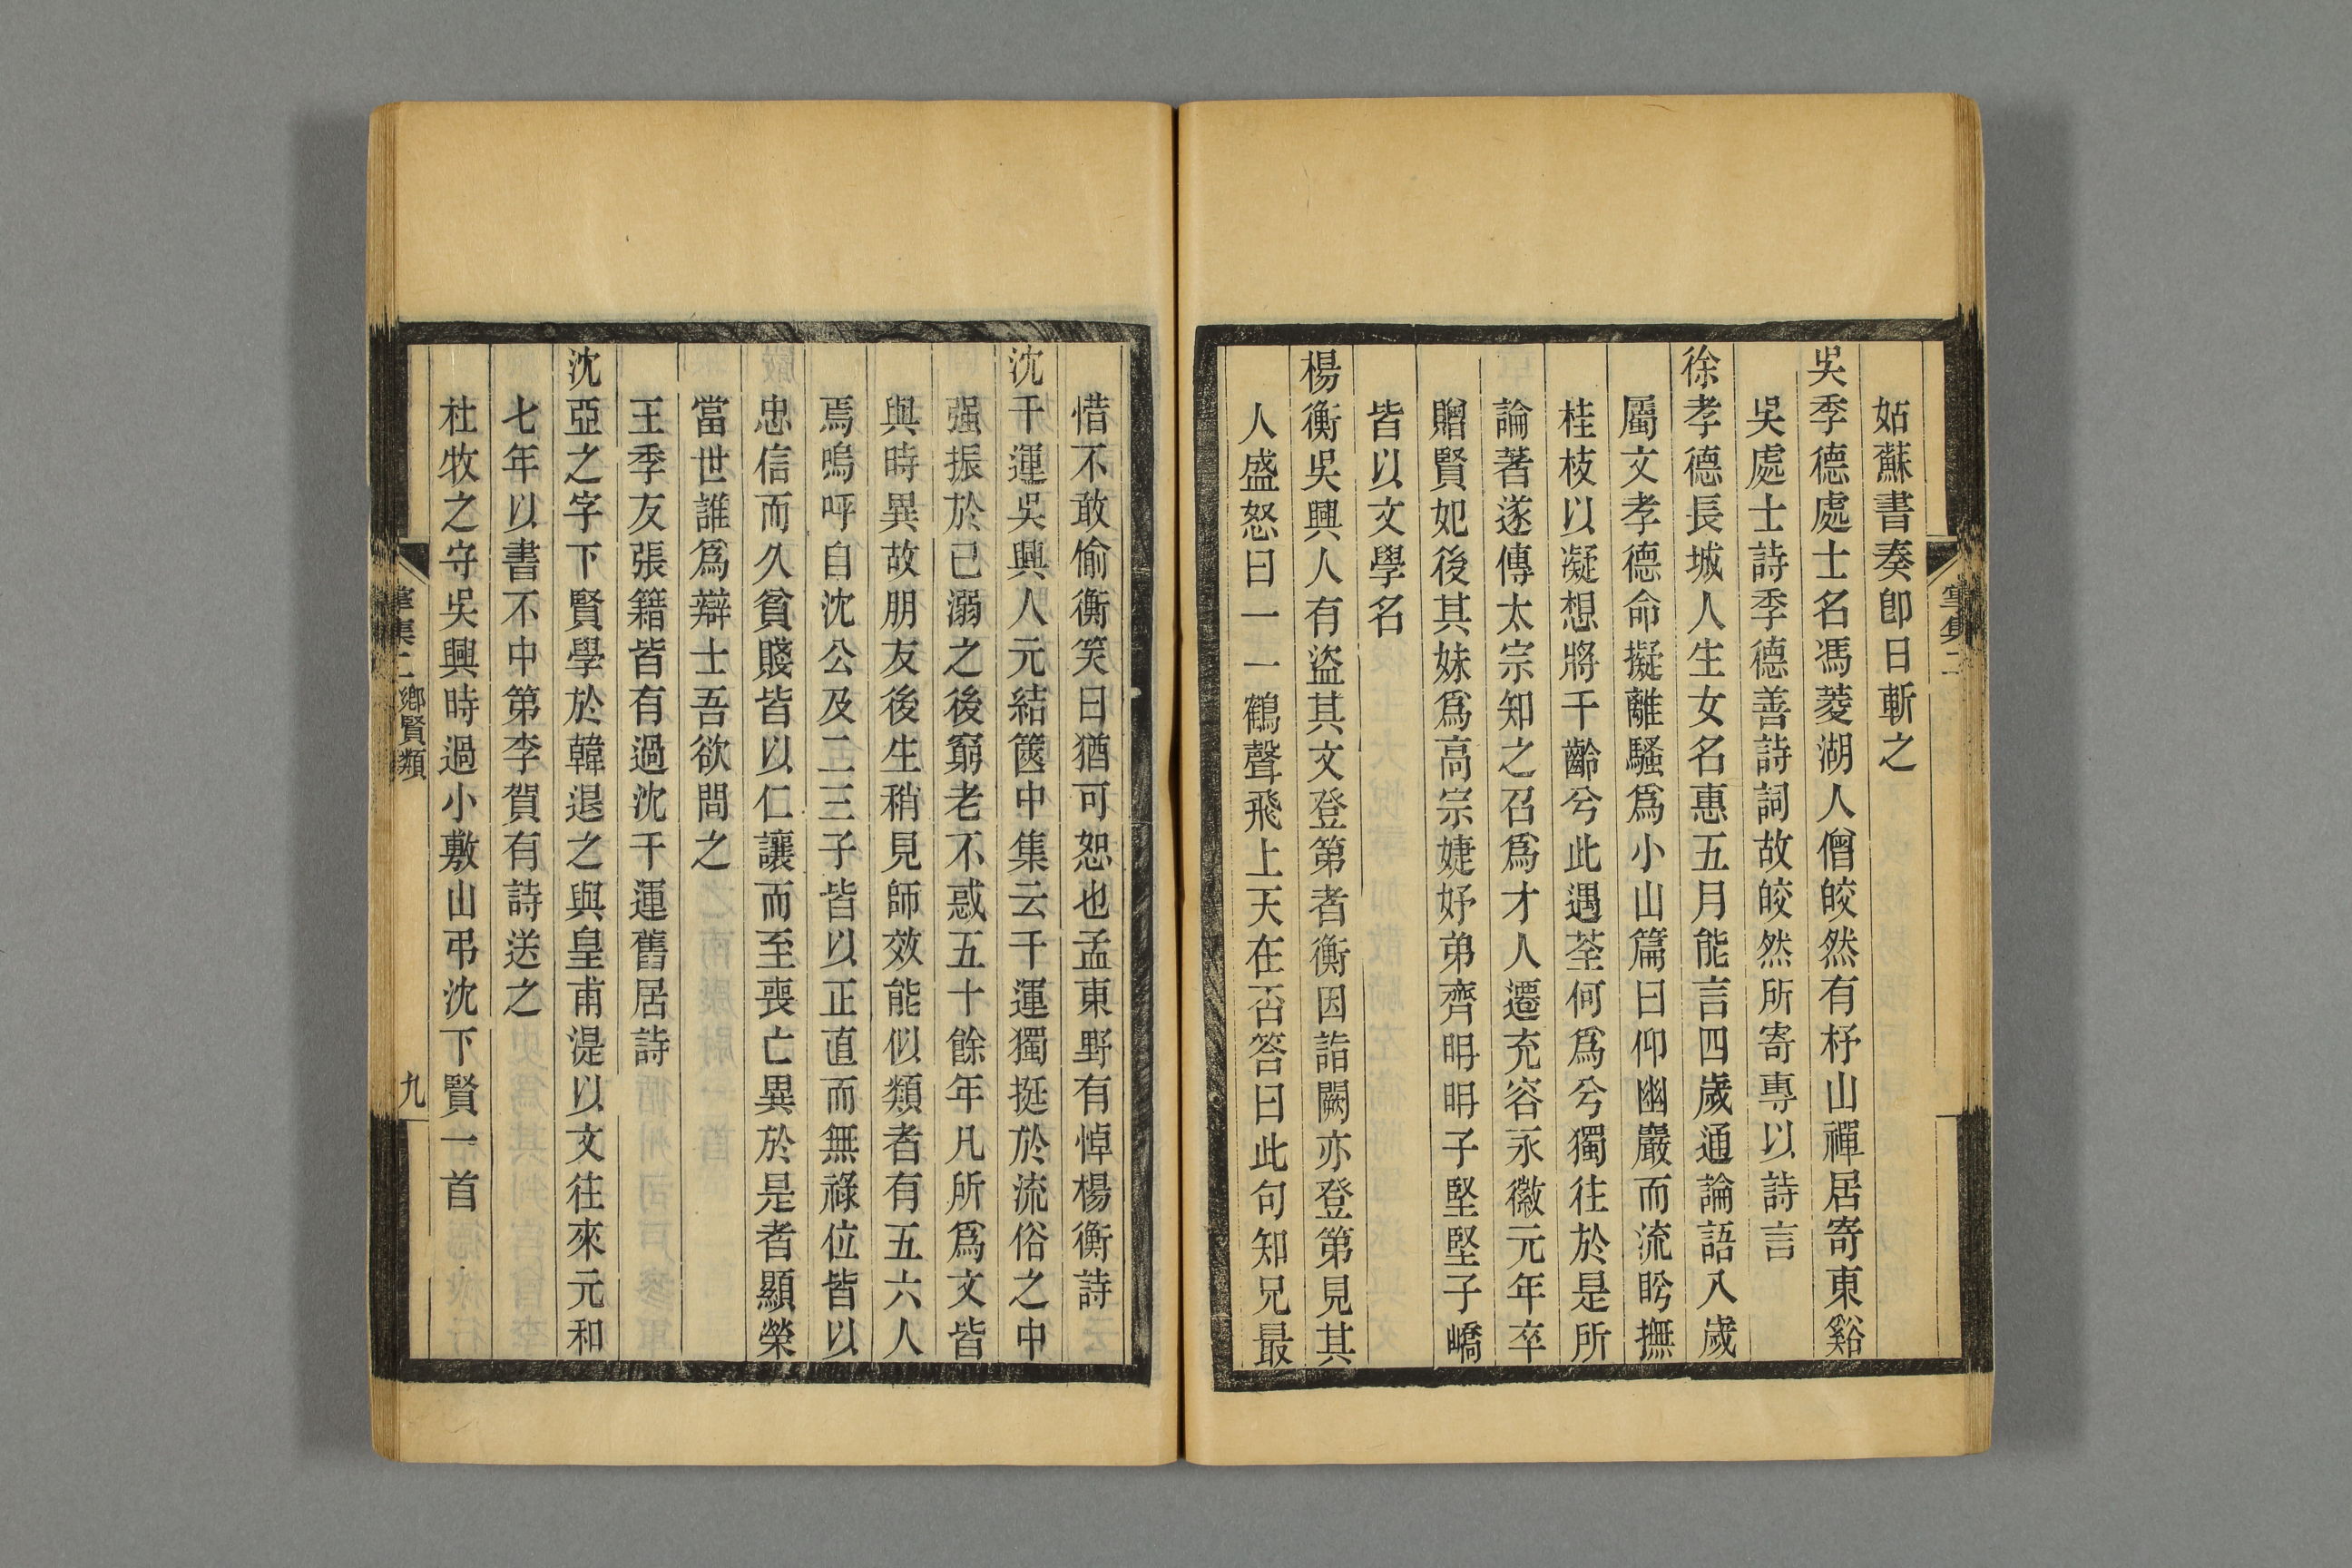 姑蘇書奏卽日斬之
吳季德處士名馮菱湖人僧皎然有杼山禪居寄東谿
吳處士詩季德善詩詞故皎然所寄專以詩言
徐孝德長城人生女名惠五月能言四歲通論語八歲
屬文孝德命擬離騷爲小山篇曰仰幽巖而流盻撫
桂枝以凝想將千齡兮此遇荃何爲兮獨往於是所
論著遂傳太宗知之召爲才人遷充容永徽元年卒
贈賢妃後其妹爲高宗婕妤弟齊聃聃子堅堅子嶠
皆以文學名
楊衡吳興人有盜其文登第者衡因詣闕亦登第見其
人盛怒曰一一鶴聲飛上天在否答曰此句知兄最
惜不敢偷衡笑曰猶可恕也孟東野有悼楊衡詩
沈千運吳興人元結篋中集云千運獨挺於流俗之中
强振於已溺之後窮老不惑五十餘年凡所爲文皆
與時異故朋友後生稍見師效能似類者有五六人
焉嗚呼自沈公及二三子皆以正直而無祿位皆以
忠信而久貧賤皆以仁讓而至喪亡異於是者顯榮
當世誰爲辯士吾欲問之
王季友張籍皆有過沈千運舊居詩
沈亞之字下賢學於韓退之與皇甫湜以文往來元和
七年以書不中第李賀有詩送之
杜牧之守吳興時過小敷山弔沈下賢一首
掌集二 鄉賢類
九